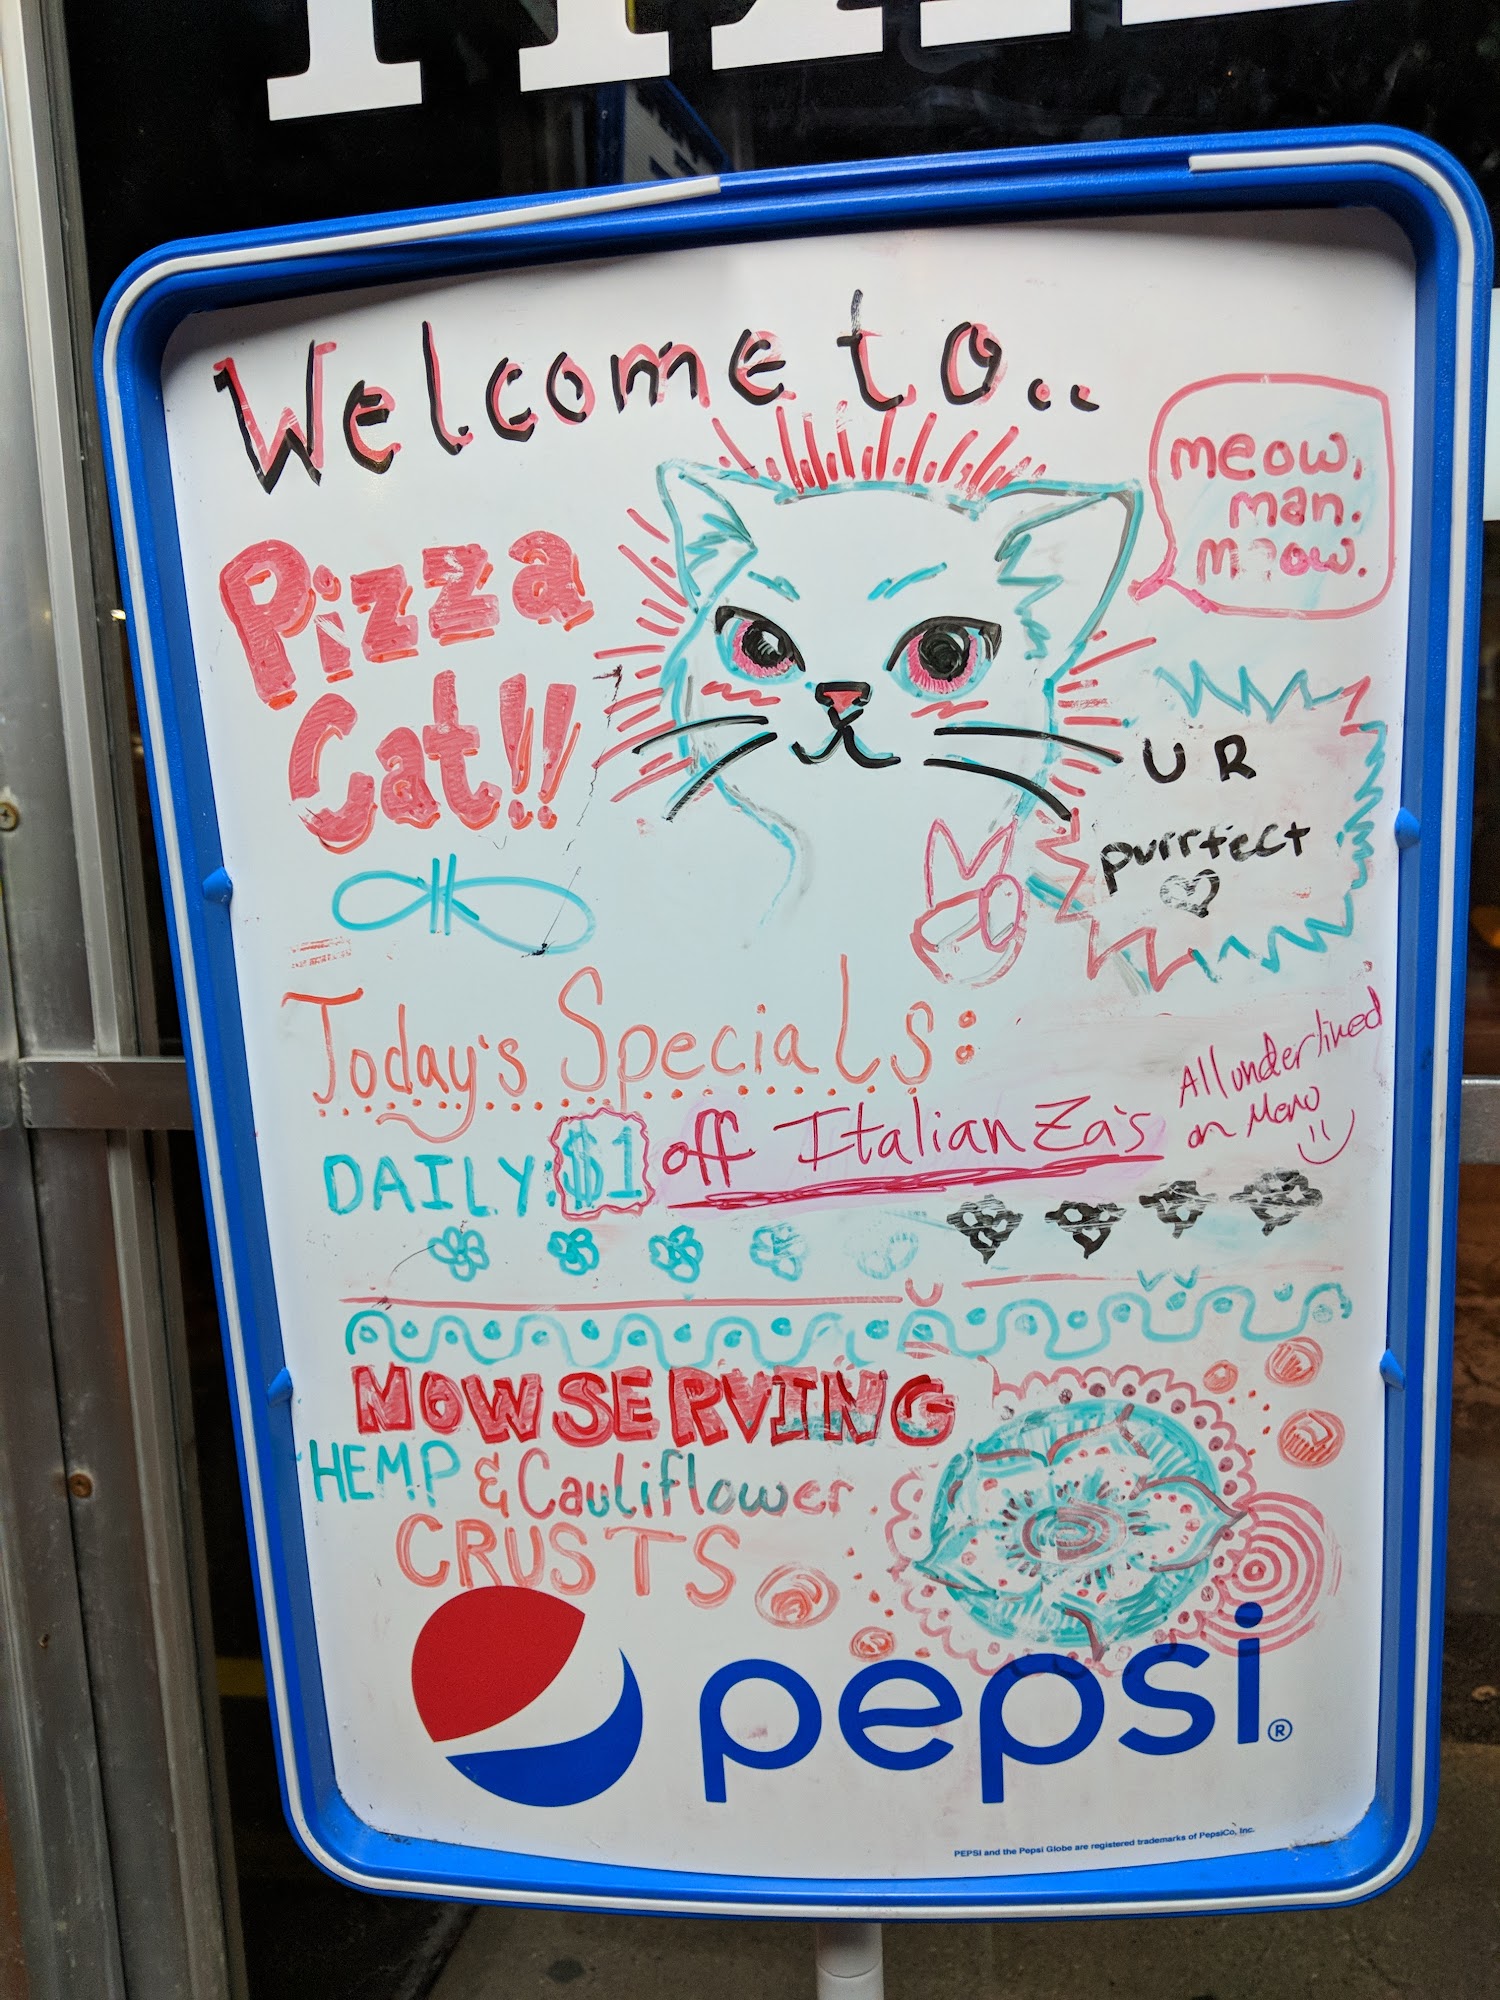 Welcome to..
Pizza
Cat!!
meow,
man.
meow.
U R
purrfect
Today's Specials:
DAILY: $1 off Italian Za's
All underlined
on Menu
NOW SERVING
HEMP & Cauliflower
CRUSTS
pepsi®
PEPSI and the Pepsi Globe are registered trademarks of PepsiCo, Inc.